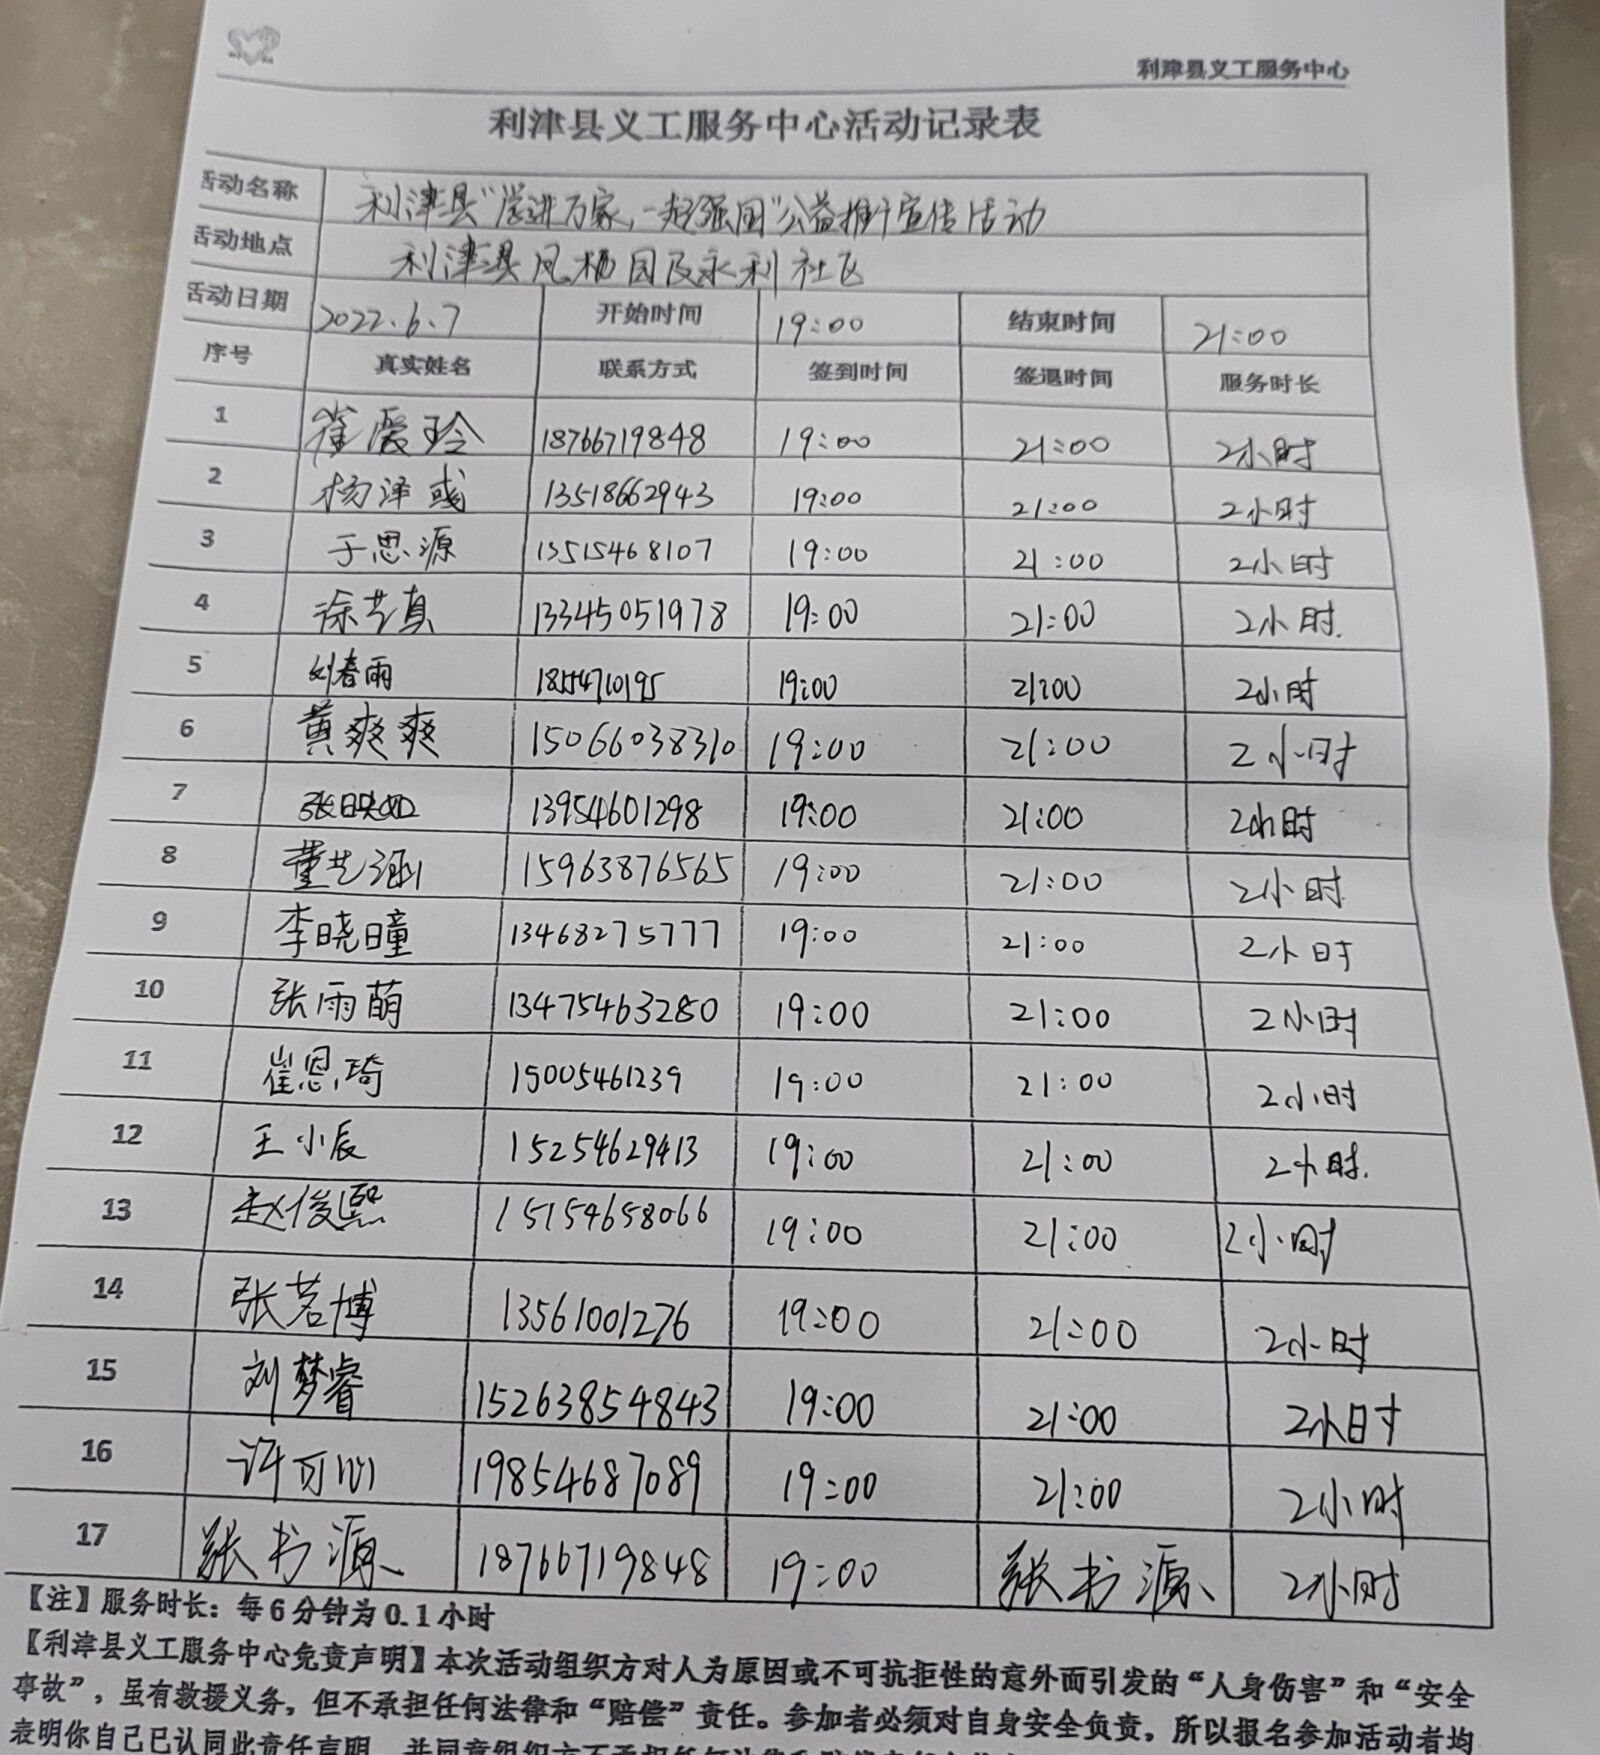 利津县义工服务中心
利津县义工服务中心活动记录表
活动名称 利津县“学进万家,一起强国”公益推广宣传活动
活动地点 利津县凤栖园及永利社区
活动日期 2022.6.7 开始时间 19:00 结束时间 21:00
序号 真实姓名 联系方式 签到时间 签退时间 服务时长
1 崔爱玲 18766719848 19:00 21:00 2小时
2 杨泽彧 13518662943 19:00 21:00 2小时
3 于思源 13515468107 19:00 21:00 2小时
4 徐艺真 13345051978 19:00 21:00 2小时.
5 刘春雨 18554710195 19:00 21:00 2小时
6 黄爽爽 15066038310 19:00 21:00 2小时
7 张映如 13954601298 19:00 21:00 2小时
8 董艺涵 15963876565 19:00 21:00 2小时
9 李晓瞳 13468275777 19:00 21:00 2小时
10 张雨萌 13475463280 19:00 21:00 2小时
11 崔恩琦 15005461239 19:00 21:00 2小时
12 王小辰 15254629413 19:00 21:00 2小时.
13 赵俊熙 15154658066 19:00 21:00 2小时
14 张茗博 13561001276 19:00 21:00 2小时
15 刘梦睿 15263854843 19:00 21:00 2小时
16 许可心 19854687089 19:00 21:00 2小时
17 张书源 18766719848 19:00 张书源 2小时
【注】服务时长:每6分钟为0.1小时
【利津县义工服务中心免责声明】本次活动组织方对人为原因或不可抗拒性的意外而引发的“人身伤害”和“安全
事故”,虽有救援义务,但不承担任何法律和“赔偿”责任。参加者必须对自身安全负责,所以报名参加活动者均
表明你自己已认同此责任声明,并同意组织方不承担任何法律和赔偿